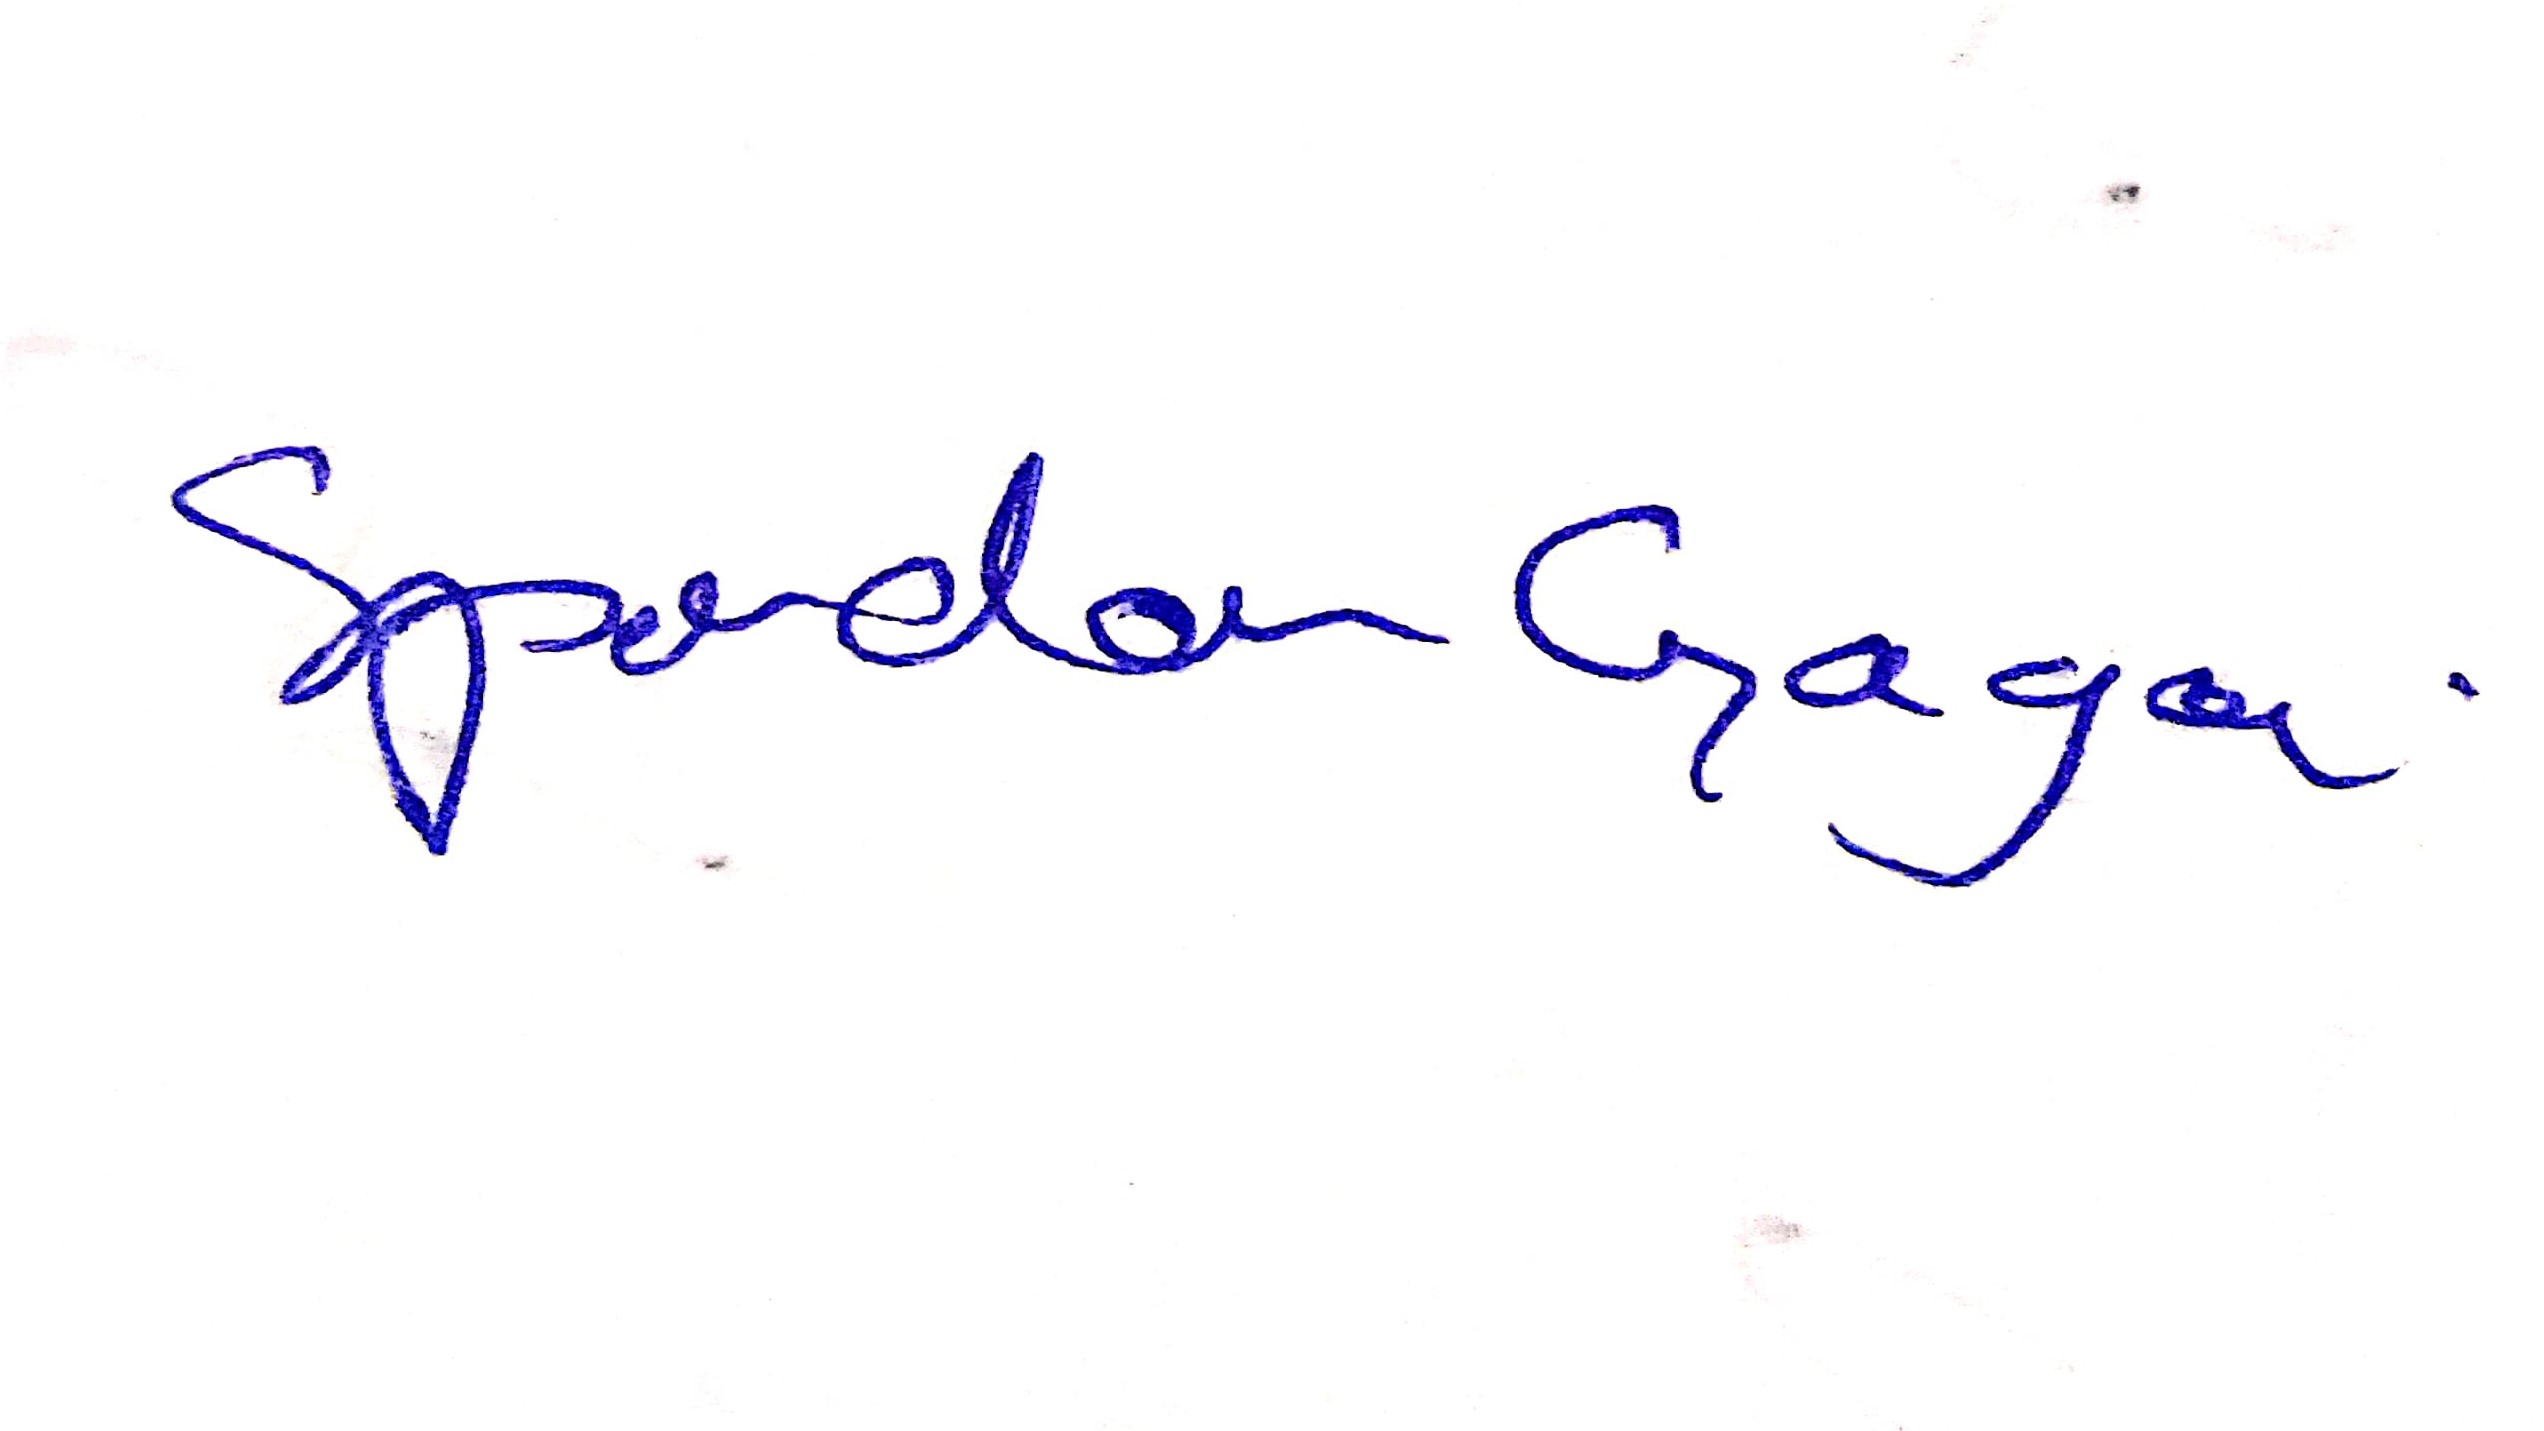 Spandan Gagoi